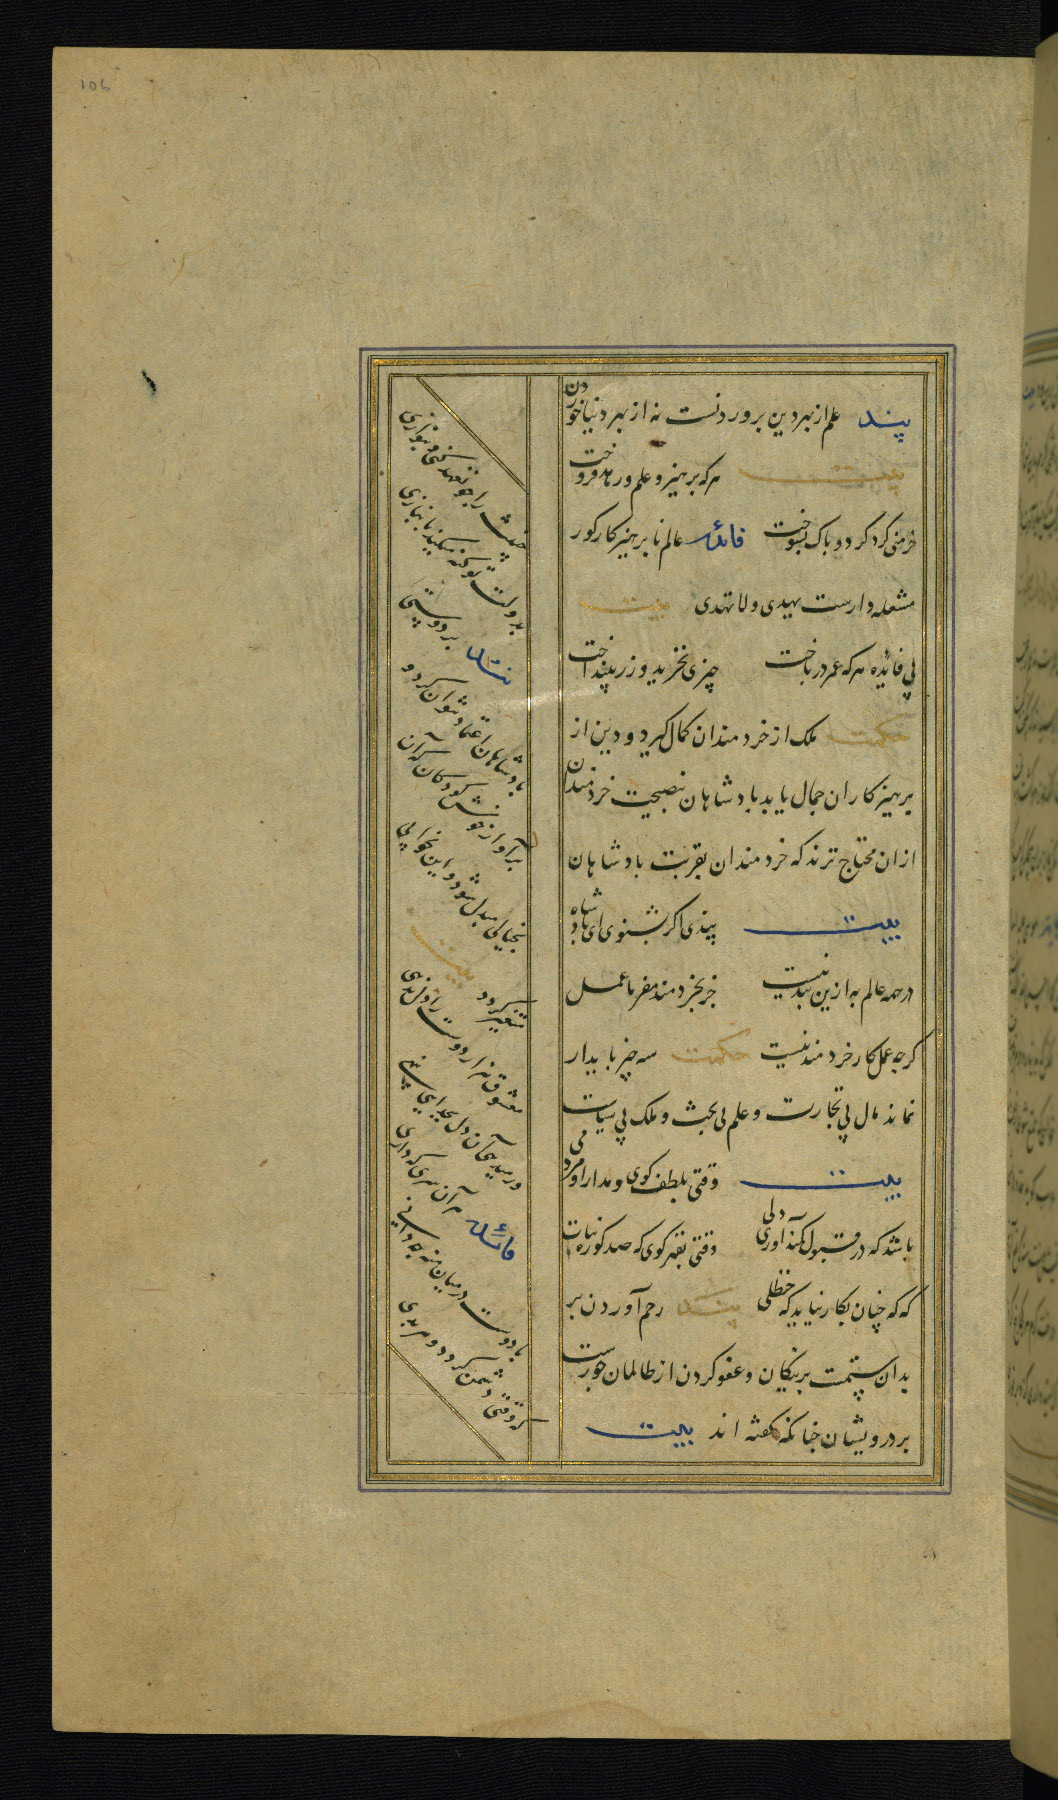 106
پند علم از بهر دین پروردنست نه از بهر دنیا خوردن
بیت هر که پرهیز و علم و زهد فروخت
خرمنی گرد کرد و پاک بسوخت فائده عالم ناپرهیزکار کور
مشعله دارست یهدی و لا تهتدی بیت
بی فائده هر که عمر در باخت چیزی نخرید و زر بینداخت
حکمت ملک از خردمندان کمال گیرد و دین از
پرهیزکاران جمال یابد پادشاهان بنصیحت خردمندان
ازان محتاج ترند که خردمندان بقربت پادشاهان
بیت پندی اگر بشنوی ای پادشاه
در همه عالم به ازین پند نیست جز بخردمند مفرما عمل
گرچه عمل کار خردمند نیست حکمت سه چیز پایدار
نماند مال بی تجارت و علم بی بحث و ملک بی سیاست
بیت وقتی بلطف کوی و مدارا و مردمی
باشد که در کمند قبول آوری دلی وقتی بقهر کوی که صد کوزه نبات
که که چنان بکار نیاید که حنظلی پند رحم آوردن بر
بدان ستمست بر نیکان و عفو کردن از ظالمان جورست
بر درویشان چنانکه گفته اند بیت
خبیث را چو تعهد کنی و بنوازی
بدولت تو گنه میکند بانبازی
پند بر دوستی
پادشاهان اعتماد نتوان کرد و
بر آواز خوش کودکان که آن
بخیالی مبدل شود و این بخوابی
متغیر گردد بیت
معشوق هزار دوست را دل ندهی
ور میدهی آن دل بجدایی بنهی
فائده هر آن سری که داری
با دوست در میان منه چه دانی
که وقتی دشمن گردد و هر بدی